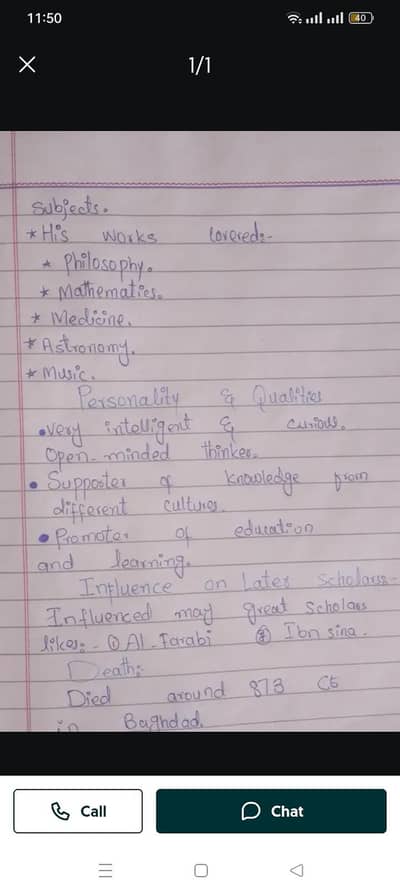 11:50
40
1/1
Subjects.
* His works Covered:-
* Philosophy.
* Mathematics.
* Medicine.
* Astronomy.
* Music.
Personality & Qualities
• very intelligent & curious.
Open-minded thinker.
• Supporter of knowledge from
different cultures.
• Promoter of education
and learning.
Influence on Later Scholars-
Influenced may great scholars
likes:- ① Al-Farabi ② Ibn sina.
Death:
Died around 873 CE
in Baghdad.
Call
Chat